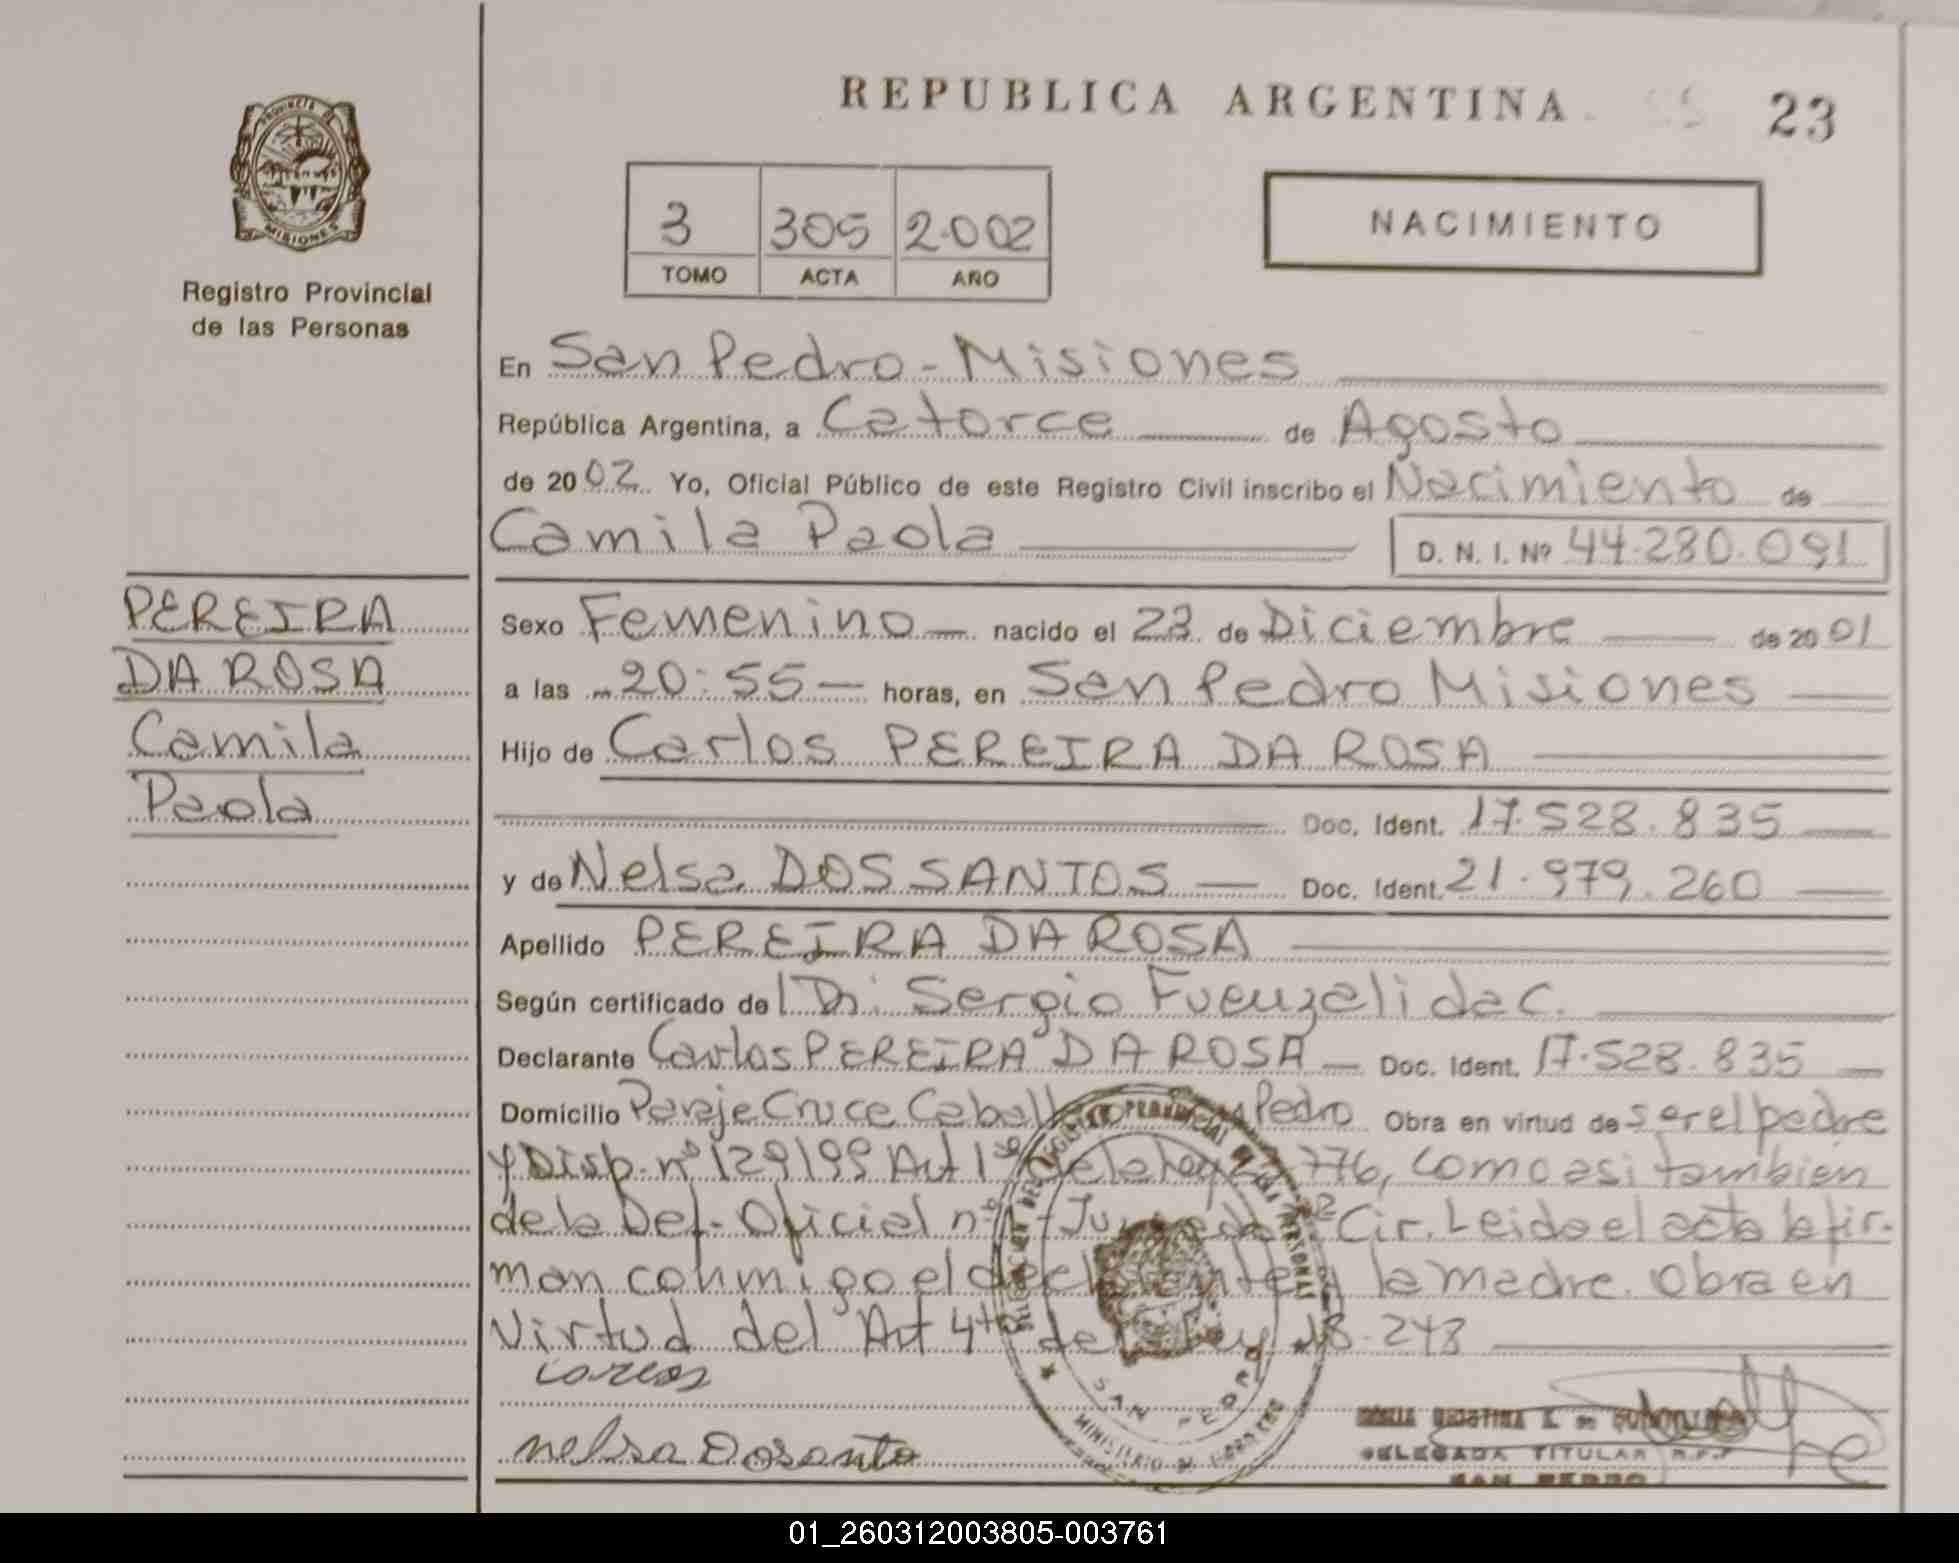 REPUBLICA ARGENTINA
23
PROVINCIA DE
MISIONES
Registro Provincial
de las Personas
3 305 2.002
TOMO ACTA AÑO
NACIMIENTO
En San Pedro - Misiones
República Argentina, a Catorce de Agosto
de 2002 Yo, Oficial Público de este Registro Civil inscribo el Nacimiento de
Camila Paola D. N. I. Nº 44.280.091
PEREIRA
DA ROSA
Camila
Paola
Sexo Femenino nacido el 23 de Diciembre de 2001
a las 20:55 horas, en San Pedro Misiones
Hijo de Carlos PEREIRA DA ROSA
Doc. Ident. 17.528.835
y de Nelsa DOS SANTOS Doc. Ident. 21.979.260
Apellido PEREIRA DA ROSA
Según certificado del Dr. Sergio Fuenzalida C.
Declarante Carlos PEREIRA DA ROSA Doc. Ident. 17.528.835
Domicilio Paraje Cruce Pedro Obra en virtud de ser el padre
y Disp. nº 129/99 Art 1º de la ley 776, como asi tambien
de la Def. Oficial nº 1 - Cir. Leida el acta la fir-
man conmigo el declarante y la madre. Obra en
Virtud del Art 4to de Ley 18.248
Carlos
nelsa Dosanto
SAN PEDRO
DELEGADA TITULAR R.P.P
SAN PEDRO
01_260312003805-003761